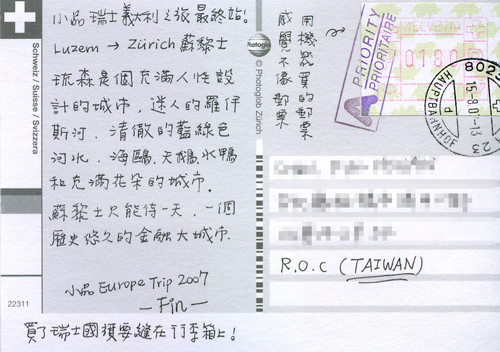 小品瑞士義大利之旅最終站!
Luzern → Zürich 蘇黎士
琉森是個充滿人性設
計的城市，迷人的羅伊
斯河、清徹的藍綠色
河水、海鷗、天鵝、水鴨
和充滿花朵的城市．
蘇黎士只能待一天，一個
歷史悠久的金融大城市．
小品 Europe Trip 2007
— Fin —
買了瑞士國旗要縫在行李箱上!
用機器買的郵票
感覺不像郵票
Schweiz / Suisse / Svizzera
22311
Photoglob
© Photoglob Zürich
PRIORITY
PRIORITAIRE
A
HELVETIA
0180
802
15-8.07
23
d
HAUPTBAHNHOF
R.O.C (TAIWAN)